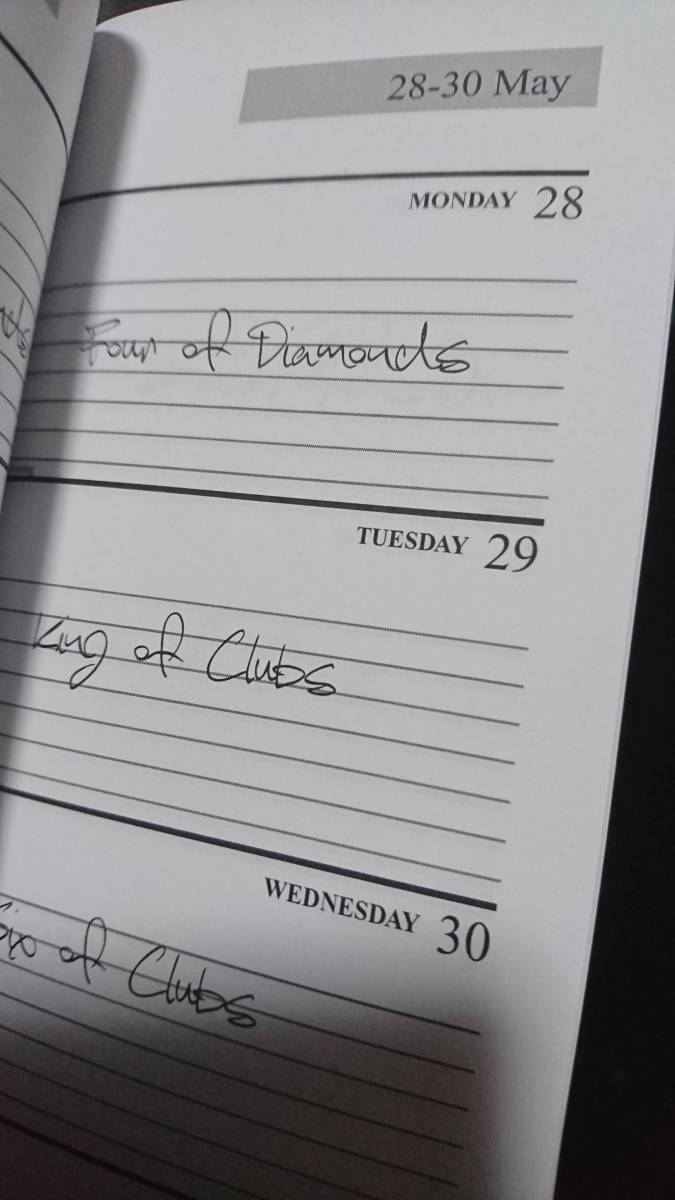 28-30 May
MONDAY 28
Four of Diamonds
TUESDAY 29
King of Clubs
WEDNESDAY 30
Six of Clubs